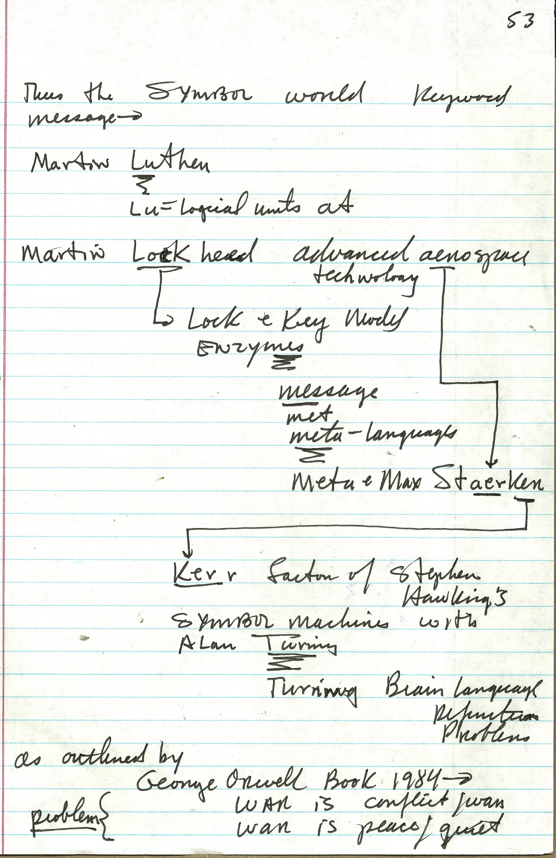 53
Thus the SYMBOL world keyword
message→
Martin Luther
Lu = Logical units at
Martin Lockheed advanced aerospace
technology
Lock & Key Model
ENzymes
message
met
meta-languages
Meta & Max Staerken
Kerr factor of Stephen
Hawking's
SYMBOL machines with
Alan Turing
Turning Brain Language
Definition
Problems
as outlined by
George Orwell Book 1984→
WAR is conflict/war
problem{ war is peace/quiet